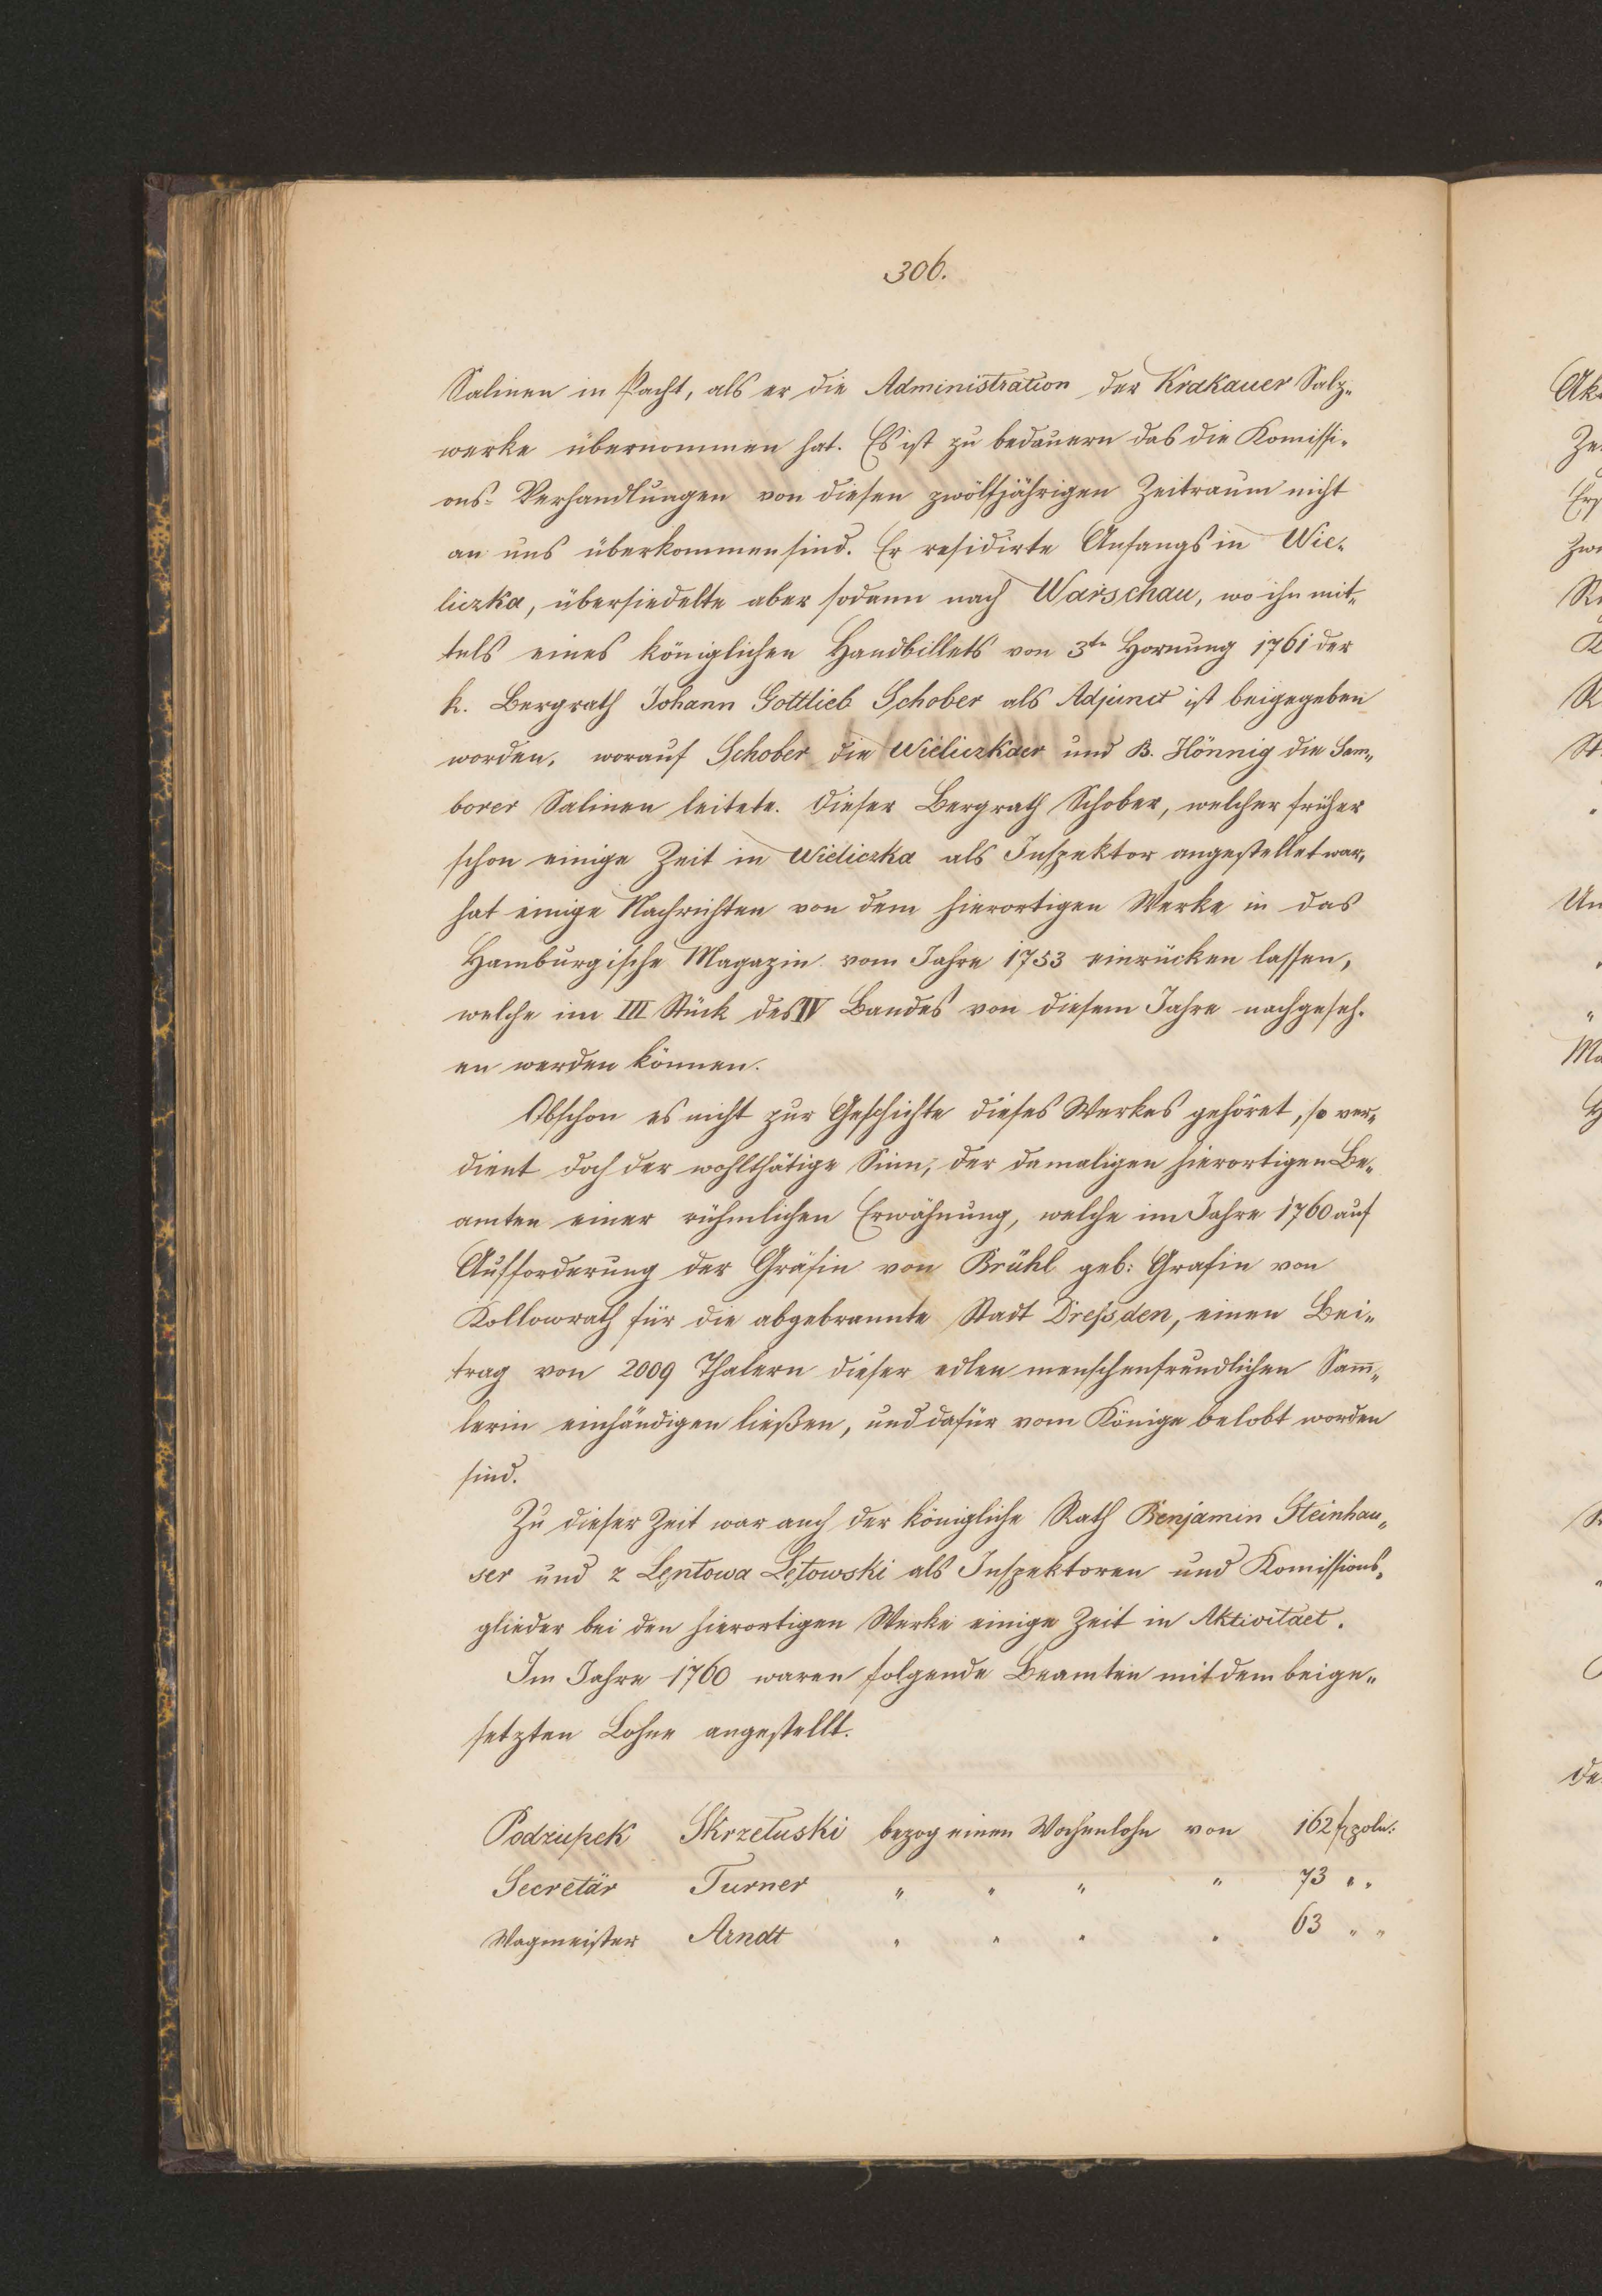 306.
Salinen in Pacht, als er die Administration der Krakauer Salz-
werke übernommen hat. Es ist zu bedauern das die Komissi-
ons- Verhandlungen von diesen zwölfjährigen Zeitraum nicht
an uns überkommen sind. Er residirte Anfangs in Wie-
liczka, übersiedelte aber sodann nach Warschau, wo ihn mit-
tels eines königlichen Handbillets von 3te Hornung 1761 der
k. Bergrath Johann Gottlieb Schober als Adjunct ist beigegeben
worden, worauf Schober die Wieliczkaer und B. Hönnig die Sam-
borer Salinen leitete. Dieser Bergrath Schober, welcher früher
schon einige Zeit in Wieliczka als Inspektor angestellet war,
hat einige Nachrichten von dem hierortigen Werke in das
Hamburgische Magazin vom Jahre 1753 einrücken lassen,
welche im III Stück des IV Bandes von diesem Jahre nachgeseh-
en werden können.
Obschon es nicht zur Geschichte dieses Werkes gehöret, so ver-
dient doch der wohlthätige Sinn, der damaligen hierortigen Be-
amten einer rühmlichen Erwähnung, welche im Jahre 1760 auf
Aufforderung der Gräfin von Brühl geb: Grafin von
Kollowrath für die abgebrannte Stadt Dreßden, einen Bei-
trag von 2009 Thalern dieser edlen menschenfreundlichen Samm-
lerin einhändigen ließen, und dafür vom Könige belobt worden
sind.
Zu dieser Zeit war auch der königliche Rath Benjamin Steinhau-
ser und z Lentowa Lętowski als Inspektoren und Komissions-
glieder bei den hierortigen Werke einige Zeit in Aktivitaet.
Im Jahre 1760 waren folgende Beamten mit dem beige-
setzten Lohne angestellt.
Podzupek Skrzetuski bezog einen Wochenlohn von 162 f poln:
Secretär Turner " " " " 73 " "
Wagmeister Arndt " " " " 63 " "